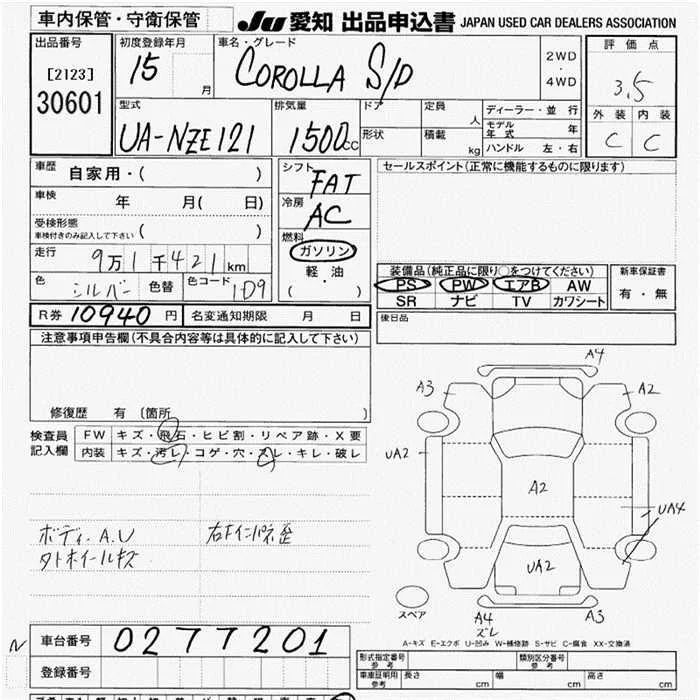 車内保管・守衛保管
JU 愛知 出品申込書 JAPAN USED CAR DEALERS ASSOCIATION
出品番号
[2123]
30601
初度登録年月
15 月
車名・グレード
COROLLA S/D
2WD
・
4WD
評価点
3.5
外装 内装
C C
型式
UA-NZE121
排気量
1500cc
ドア
形状
定員 人
積載 kg
ディーラー・並行
モデル年式 年
ハンドル 左・右
車歴
自家用・( )
車検
年 月( 日)
受検形態
車検付きのみ記入して下さい ( )
走行
9万1千421km
色
シルバー 色替 色コード 1D9
シフト
FAT
冷房
AC
燃料
ガソリン
軽・油
( )
セールスポイント(正常に機能するものに限ります)
装備品(純正品に限り○をつけてください)
PS PW エアB AW
SR ナビ TV カワシート
新車保証書
有・無
R券 10940 円 名変通知期限 月 日
後日品
注意事項申告欄(不具合内容等は具体的に記入して下さい)
修復歴 有 (箇所 )
検査員
記入欄
FW キズ・飛石・ヒビ割・リペア跡・X要
内装 キズ・汚レ・コゲ・穴・スレ・キレ・破レ
ボディ A.U
タトホイールキズ
A4
A3
A2
UA2
A2
UA4
UA2
スペア
A4
ズレ
A3
A-キズ E-エクボ U-凹み W-補修跡 S-サビ C-腐食 XX-交換済
N
車台番号 0277201
登録番号
形式指定番号
参考
類別区分番号
参考
車庫証明用
参考
長さ cm 幅 cm 高さ cm